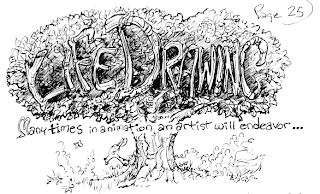 Page 25
LIFE DRAWING
Many times in animation an artist will endeavor...